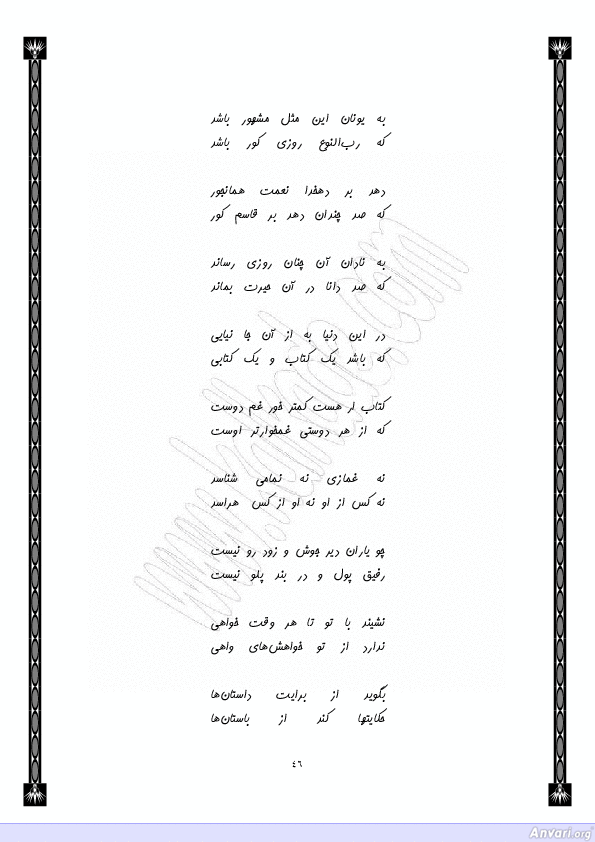 به یونان این مثل مشهور باشد
که رب‌النوع روزی کور باشد
دهد بر دهخدا نعمت همانجور
که صد چندان دهد بر قاسم کور
به نادان آن چنان روزی رساند
که صد دانا در آن حیرت بماند
در این دنیا به از آن جا نیابی
که باشد یک کتاب و یک کتابی
کتاب ار هست کمتر خور غم دوست
که از هر دوستی غمخوارتر اوست
نه غمازی نه نمامی شناسد
نه کس از او نه او از کس هراسد
چو یاران دیر جوش و زود رو نیست
رفیق پول و در بند پلو نیست
نشیند با تو تا هر وقت خواهی
ندارد از تو خواهش‌های واهی
بگوید از برایت داستان‌ها
حکایتها کند از باستان‌ها
٤٦
Anvari.org